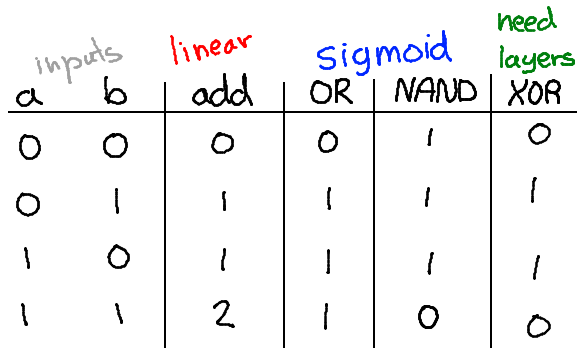 inputs linear sigmoid need layers
a b add OR NAND XOR
0 0 0 0 1 0
0 1 1 1 1 1
1 0 1 1 1 1
1 1 2 1 0 0